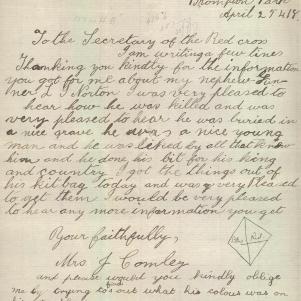 Brompton Park
April 27 4 18
To the Secretary of the Red cross
I am writing a few lines
Thanking you kindly for the information
you got for me about my nephew
ner L J Norton I was very pleased to
hear how he was killed and was
very pleased to hear he was buried in
a nice grave he was a nice young
man and he was liked by all that know
him and he done his bit for his king
and country. I got the things out of
his kitbag today and was very pleased
to get them I would be very pleased
to hear any more information you get
Your faithfully,
Mrs J Comley
and please would you kindly oblige
me by trying to out what his colours was on
Blue Red